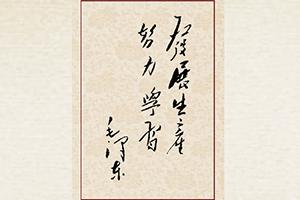 发展生產
努力學習
毛澤东